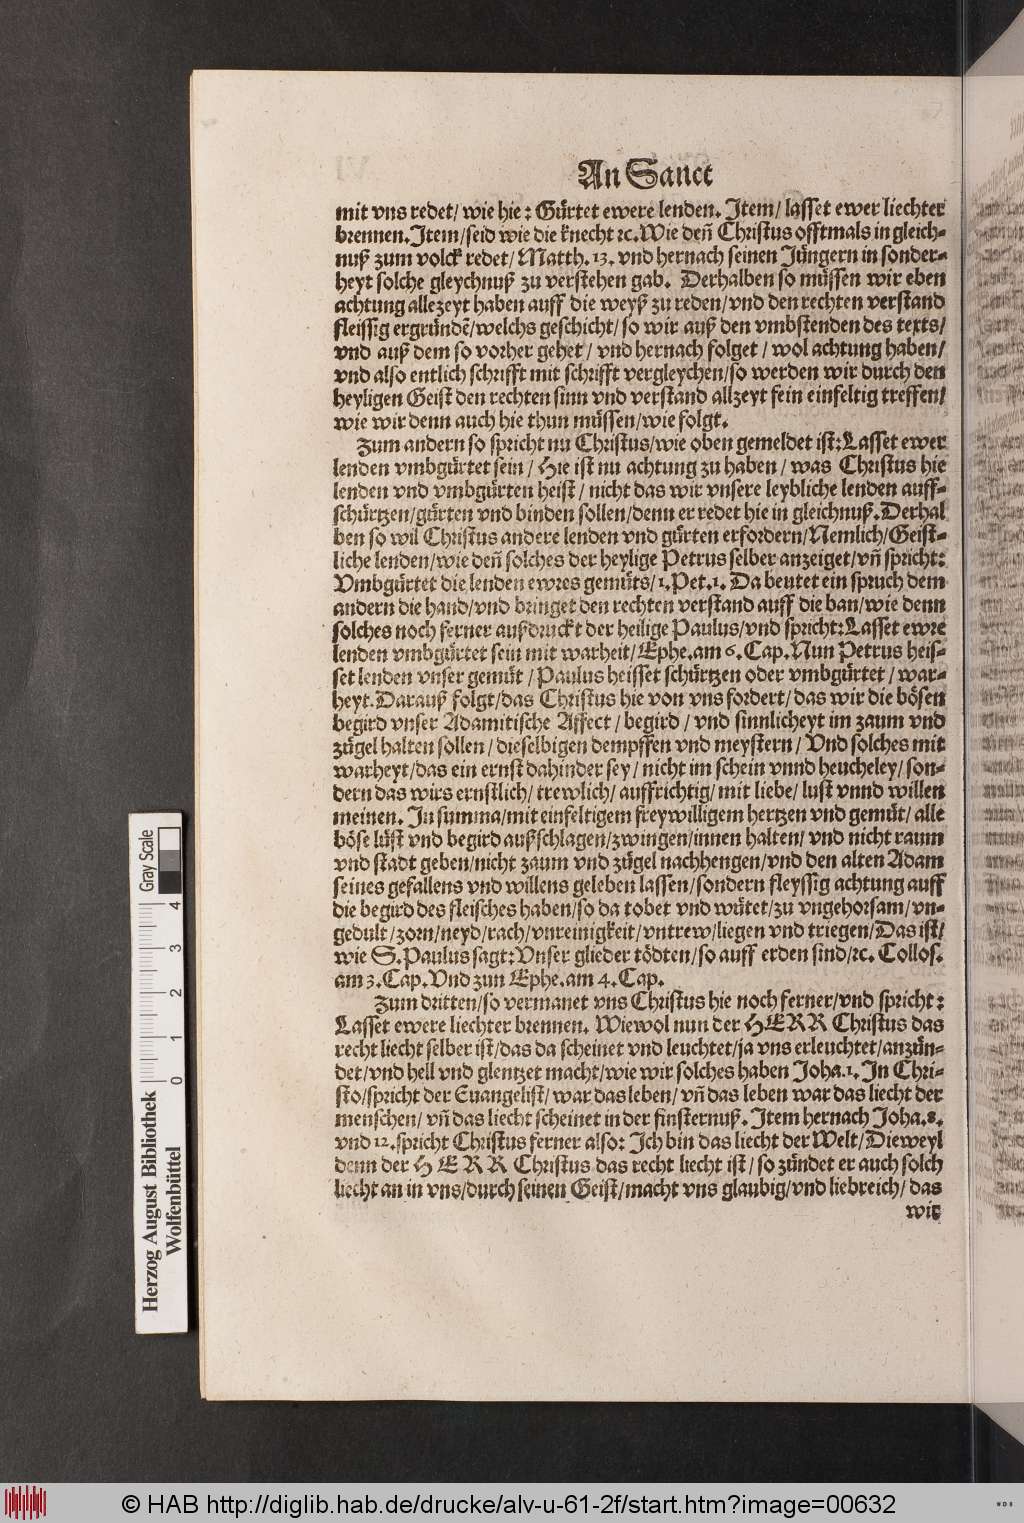 An Sanct
mit vns redet/ wie hie: Gürtet ewere lenden. Item/ lasset ewer liechter
brennen. Item/ seid wie die knecht ⁊c. Wie deñ Christus offtmals in gleich-
nuß zum volck redet/ Matth. 13. vnd hernach seinen Jüngern in sonder-
heyt solche gleychnuß zu verstehen gab. Derhalben so müssen wir eben
achtung allezeyt haben auff die weyß zu reden/ vnd den rechten verstand
fleissig ergründẽ/ welchs geschicht/ so wir auß den vmbstenden des texts/
vnd auß dem so vorher gehet/ vnd hernach folget/ wol achtung haben/
vnd also entlich schrifft mit schrifft vergleychen/ so werden wir durch den
heyligen Geist den rechten sinn vnd verstand allzeyt fein einfeltig treffen/
wie wir denn auch hie thun müssen/ wie folgt.
Zum andern so spricht nu Christus/ wie oben gemeldet ist: Lasset ewer
lenden vmbgürtet sein/ Hie ist nu achtung zu haben/ was Christus hie
lenden vnd vmbgürten heist/ nicht das wir vnsere leybliche lenden auff-
schürtzen/ gürten vnd binden sollen/ denn er redet hie in gleichnuß. Derhal
ben so wil Christus andere lenden vnd gürten erfordern/ Nemlich/ Geist-
liche lenden/ wie deñ solches der heylige Petrus selber anzeiget/ vñ spricht:
Vmbgürtet die lenden ewres gemüts/ 1. Pet. 1. Da beutet ein spruch dem
andern die hand/ vnd bringet den rechten verstand auff die ban/ wie denn
solches noch ferner außdruckt der heilige Paulus/ vnd spricht: Lasset ewre
lenden vmbgürtet sein mit warheit/ Ephe. am 6. Cap. Nun Petrus heis-
set lenden vnser gemüt/ Paulus heisset schürtzen oder vmbgürtet/ war-
heyt. Darauß folgt/ das Christus hie von vns fordert/ das wir die bösen
begird vnser Adamitische Affect/ begird/ vnd sinnlicheyt im zaum vnd
zügel halten sollen/ dieselbigen dempffen vnd meystern/ Vnd solches mit
warheyt/ das ein ernst dahinder sey/ nicht im schein vnnd heucheley/ son-
dern das wirs ernstlich/ trewlich/ auffrichtig/ mit liebe/ lust vnnd willen
meinen. In summa/ mit einfeltigem freywilligem hertzen vnd gemüt/ alle
böse lüst vnd begird außschlagen/ zwingen/ innen halten/ vnd nicht raum
vnd stadt geben/ nicht zaum vnd zügel nachhengen/ vnd den alten Adam
seines gefallens vnd willens geleben lassen/ sondern fleyssig achtung auff
die begird des fleisches haben/ so da tobet vnd wütet/ zu vngehorsam/ vn-
gedult/ zorn/ neyd/ rach/ vnreinigkeit/ vntrew/ liegen vnd triegen/ Das ist/
wie S. Paulus sagt: Vnser glieder tödten/ so auff erden sind/ ⁊c. Collos.
am 3. Cap. Vnd zun Ephe. am 4. Cap.
Zum dritten/ so vermanet vns Christus hie noch ferner/ vnd spricht:
Lasset ewere liechter brennen. Wiewol nun der HERR Christus das
recht liecht selber ist/ das da scheinet vnd leuchtet/ ja vns erleuchtet/ anzün-
det/ vnd hell vnd glentzet macht/ wie wir solches haben Joha. 1. In Chri-
sto/ spricht der Euangelist/ war das leben/ vñ das leben war das liecht der
menschen/ vñ das liecht scheinet in der finsternuß. Item hernach Joha. 8.
vnd 12. spricht Christus ferner also: Ich bin das liecht der Welt/ Dieweyl
denn der HERR Christus das recht liecht ist/ so zündet er auch solch
liecht an in vns/ durch seinen Geist/ macht vns glaubig/ vnd liebreich/ das
wir
Gray Scale
0 1 2 3 4
Herzog August Bibliothek
Wolfenbüttel
© HAB http://diglib.hab.de/drucke/alv-u-61-2f/start.htm?image=00632